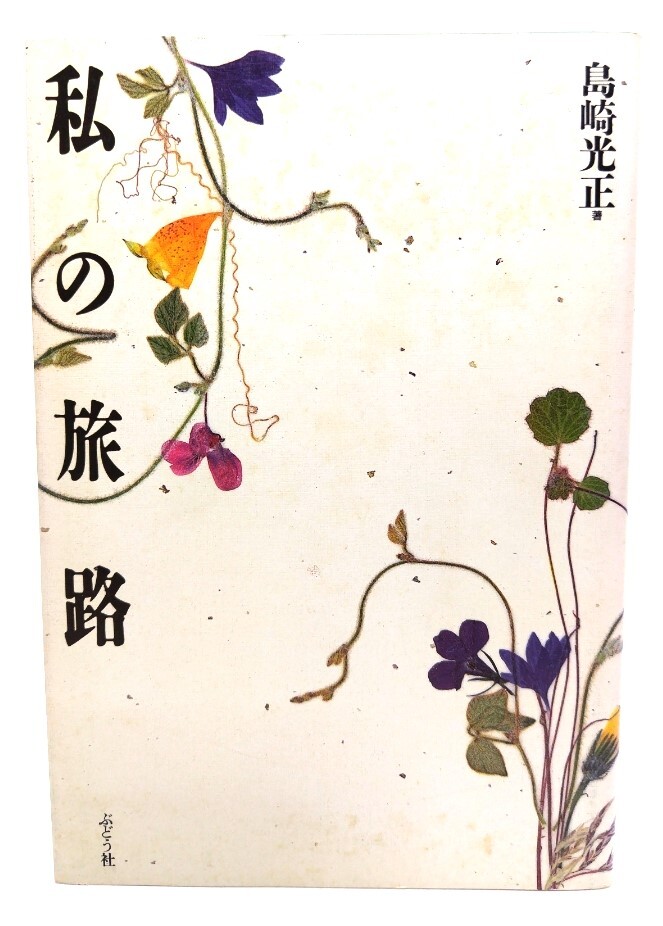 島崎光正 著
私の旅路
ぶどう社